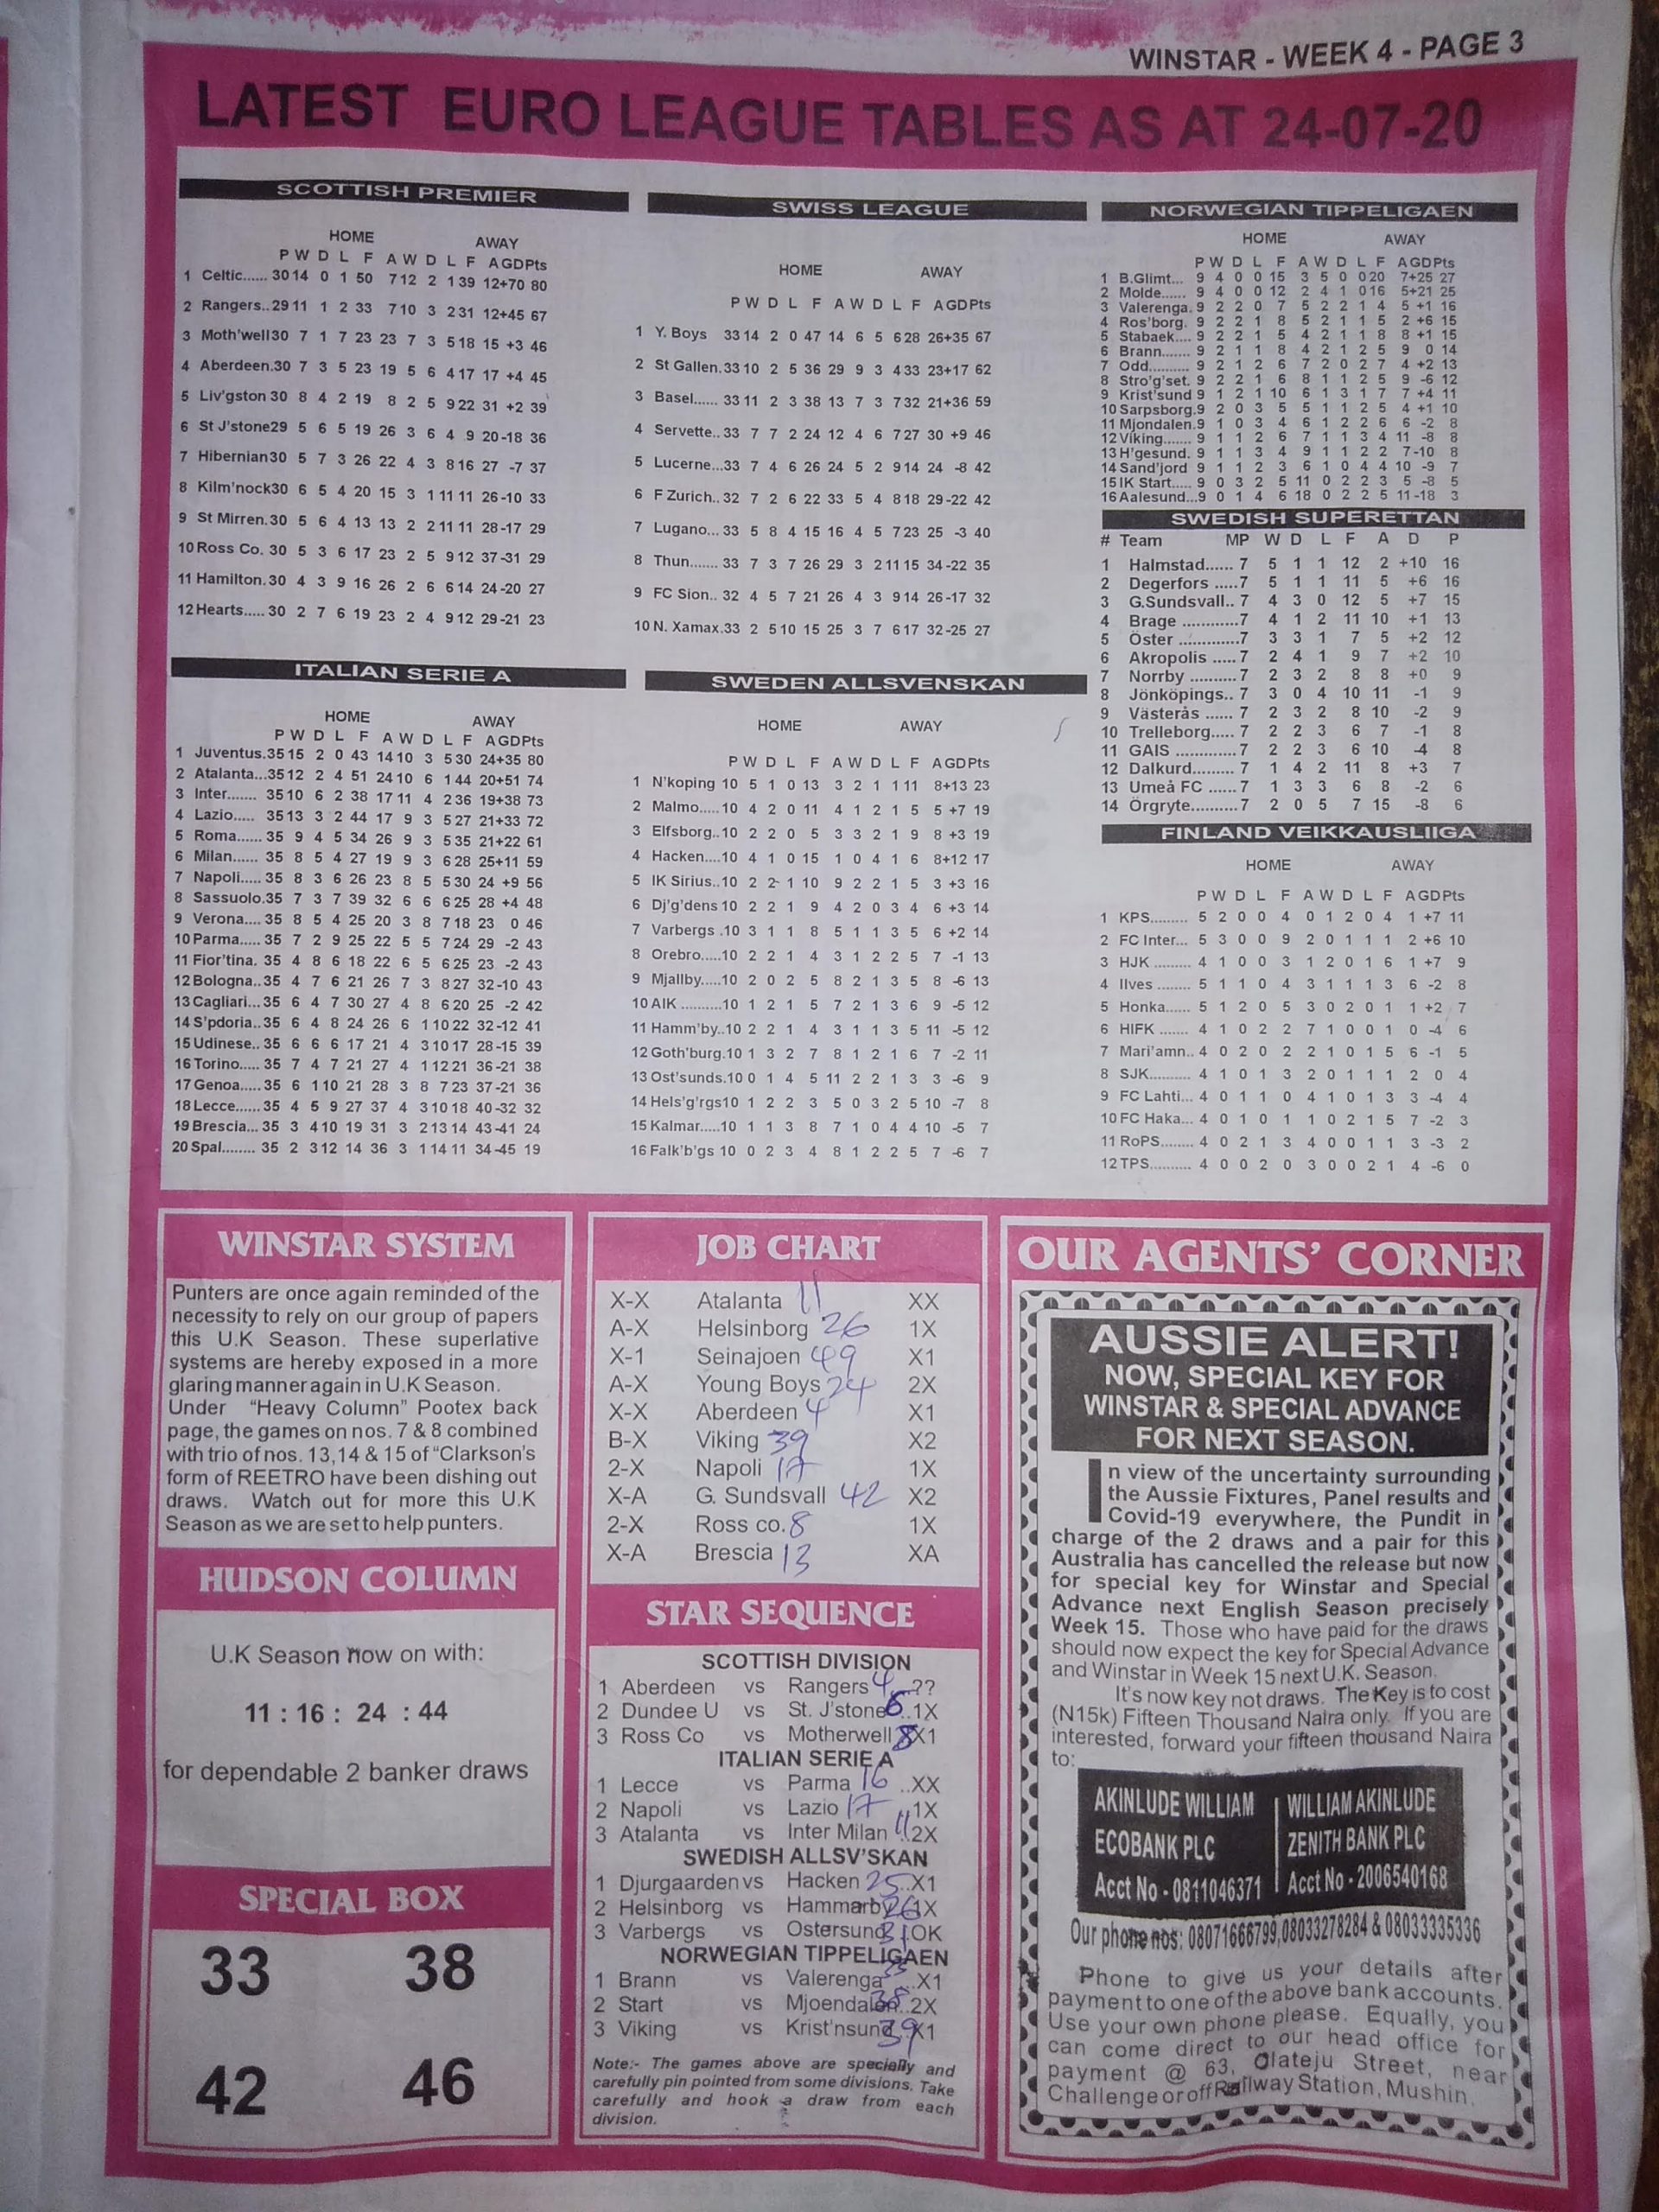 WINSTAR - WEEK 4 - PAGE 3
LATEST EURO LEAGUE TABLES AS AT 24-07-20
SCOTTISH PREMIER
HOME AWAY
P W D L F A W D L F A GD Pts
1 Celtic...... 30 14 0 1 50 7 12 2 1 39 12 +70 80
2 Rangers.. 29 11 1 2 33 7 10 3 2 31 12 +45 67
3 Moth'well 30 7 1 7 23 23 7 3 5 18 15 +3 46
4 Aberdeen. 30 7 3 5 23 19 5 6 4 17 17 +4 45
5 Liv'gston 30 8 4 2 19 8 2 5 9 22 31 +2 39
6 St J'stone 29 5 6 5 19 26 3 6 4 9 20 -18 36
7 Hibernian 30 5 7 3 26 22 4 3 8 16 27 -7 37
8 Kilm'nock 30 6 5 4 20 15 3 1 11 11 26 -10 33
9 St Mirren. 30 5 6 4 13 13 2 2 11 11 28 -17 29
10 Ross Co. 30 5 3 6 17 23 2 5 9 12 37 -31 29
11 Hamilton. 30 4 3 9 16 26 2 6 6 14 24 -20 27
12 Hearts..... 30 2 7 6 19 23 2 4 9 12 29 -21 23
ITALIAN SERIE A
HOME AWAY
P W D L F A W D L F A GD Pts
1 Juventus. 35 15 2 0 43 14 10 3 5 30 24 +35 80
2 Atalanta... 35 12 2 4 51 24 10 6 1 44 20 +51 74
3 Inter....... 35 10 6 2 38 17 11 4 2 36 19 +38 73
4 Lazio..... 35 13 3 2 44 17 9 3 5 27 21 +33 72
5 Roma...... 35 9 4 5 34 26 9 3 5 35 21 +22 61
6 Milan...... 35 8 5 4 27 19 9 3 6 28 25 +11 59
7 Napoli..... 35 8 3 6 26 23 8 5 5 30 24 +9 56
8 Sassuolo. 35 7 3 7 39 32 6 6 6 25 28 +4 48
9 Verona.... 35 8 5 4 25 20 3 8 7 18 23 0 46
10 Parma..... 35 7 2 9 25 22 5 5 7 24 29 -2 43
11 Fior'tina. 35 4 8 6 18 22 6 5 6 25 23 -2 43
12 Bologna.. 35 4 7 6 21 26 7 3 8 27 32 -10 43
13 Cagliari... 35 6 4 7 30 27 4 8 6 20 25 -2 42
14 S'pdoria.. 35 6 4 8 24 26 6 1 10 22 32 -12 41
15 Udinese.. 35 6 6 6 17 21 4 3 10 17 28 -15 39
16 Torino..... 35 7 4 7 21 27 4 1 12 21 36 -21 38
17 Genoa..... 35 6 1 10 21 28 3 8 7 23 37 -21 36
18 Lecce..... 35 4 5 9 27 37 4 3 10 18 40 -32 32
19 Brescia... 35 3 4 10 19 31 3 2 13 14 43 -41 24
20 Spal........ 35 2 3 12 14 36 3 1 14 11 34 -45 19
SWISS LEAGUE
HOME AWAY
P W D L F A W D L F A GD Pts
1 Y. Boys 33 14 2 0 47 14 6 5 6 28 26 +35 67
2 St Gallen. 33 10 2 5 36 29 9 3 4 33 23 +17 62
3 Basel...... 33 11 2 3 38 13 7 3 7 32 21 +36 59
4 Servette.. 33 7 7 2 24 12 4 6 7 27 30 +9 46
5 Lucerne... 33 7 4 6 26 24 5 2 9 14 24 -8 42
6 F Zurich.. 32 7 2 6 22 33 5 4 8 18 29 -22 42
7 Lugano... 33 5 8 4 15 16 4 5 7 23 25 -3 40
8 Thun....... 33 7 3 7 26 29 3 2 11 15 34 -22 35
9 FC Sion.. 32 4 5 7 21 26 4 3 9 14 26 -17 32
10 N. Xamax. 33 2 5 10 15 25 3 7 6 17 32 -25 27
SWEDEN ALLSVENSKAN
HOME AWAY
P W D L F A W D L F A GD Pts
1 N'koping 10 5 1 0 13 3 2 1 1 11 8 +13 23
2 Malmo..... 10 4 2 0 11 4 1 2 1 5 5 +7 19
3 Elfsborg.. 10 2 2 0 5 3 3 2 1 9 8 +3 19
4 Hacken.... 10 4 1 0 15 1 0 4 1 6 8 +12 17
5 IK Sirius.. 10 2 2 1 10 9 2 2 1 5 3 +3 16
6 Dj'g'dens 10 2 2 1 9 4 2 0 3 4 6 +3 14
7 Varbergs . 10 3 1 1 8 5 1 1 3 5 6 +2 14
8 Orebro..... 10 2 2 1 4 3 1 2 2 5 7 -1 13
9 Mjallby..... 10 2 0 2 5 8 2 1 3 5 8 -6 13
10 AIK .......... 10 1 2 1 5 7 2 1 3 6 9 -5 12
11 Hamm'by.. 10 2 2 1 4 3 1 1 3 5 11 -5 12
12 Goth'burg. 10 1 3 2 7 8 1 2 1 6 7 -2 11
13 Ost'sunds. 10 0 1 4 5 11 2 2 1 3 3 -6 9
14 Hels'g'rgs 10 1 2 2 3 5 0 3 2 5 10 -7 8
15 Kalmar..... 10 1 1 3 8 7 1 0 4 4 10 -5 7
16 Falk'b'gs 10 0 2 3 4 8 1 2 2 5 7 -6 7
NORWEGIAN TIPPELIGAEN
HOME AWAY
P W D L F A W D L F A GD Pts
1 B.Glimt... 9 4 0 0 15 3 5 0 0 20 7 +25 27
2 Molde...... 9 4 0 0 12 2 4 1 0 16 5 +21 25
3 Valerenga. 9 2 2 0 7 5 2 2 1 4 5 +1 16
4 Ros'borg. 9 2 2 1 8 5 2 1 1 5 2 +6 15
5 Stabaek.... 9 2 2 1 5 4 2 1 1 8 8 +1 15
6 Brann....... 9 2 1 1 8 4 2 1 2 5 9 0 14
7 Odd.......... 9 2 1 2 6 7 2 0 2 7 4 +2 13
8 Stro'g'set. 9 2 2 1 6 8 1 1 2 5 9 -6 12
9 Krist'sund 9 1 2 1 10 6 1 3 1 7 7 +4 11
10 Sarpsborg. 9 2 0 3 5 5 1 1 2 5 4 +1 10
11 Mjondalen. 9 1 0 3 4 6 1 2 2 6 6 -2 8
12 Viking....... 9 1 1 2 6 7 1 1 3 4 11 -8 8
13 H'gesund. 9 1 1 3 4 9 1 1 2 2 7 -10 8
14 Sand'jord 9 1 1 2 3 6 1 0 4 4 10 -9 7
15 IK Start..... 9 0 3 2 5 11 0 2 2 3 5 -8 5
16 Aalesund... 9 0 1 4 6 18 0 2 2 5 11 -18 3
SWEDISH SUPERETTAN
# Team MP W D L F A D P
1 Halmstad...... 7 5 1 1 12 2 +10 16
2 Degerfors ..... 7 5 1 1 11 5 +6 16
3 G.Sundsvall.. 7 4 3 0 12 5 +7 15
4 Brage ............ 7 4 1 2 11 10 +1 13
5 Öster ............. 7 3 3 1 7 5 +2 12
6 Akropolis ..... 7 2 4 1 9 7 +2 10
7 Norrby .......... 7 2 3 2 8 8 +0 9
8 Jönköpings.. 7 3 0 4 10 11 -1 9
9 Västerås ...... 7 2 3 2 8 10 -2 9
10 Trelleborg..... 7 2 2 3 6 7 -1 8
11 GAIS ............. 7 2 2 3 6 10 -4 8
12 Dalkurd......... 7 1 4 2 11 8 +3 7
13 Umeå FC ...... 7 1 3 3 6 8 -2 6
14 Örgryte.......... 7 2 0 5 7 15 -8 6
FINLAND VEIKKAUSLIIGA
HOME AWAY
P W D L F A W D L F A GD Pts
1 KPS......... 5 2 0 0 4 0 1 2 0 4 1 +7 11
2 FC Inter... 5 3 0 0 9 2 0 1 1 1 2 +6 10
3 HJK ........ 4 1 0 0 3 1 2 0 1 6 1 +7 9
4 Ilves ....... 5 1 1 0 4 3 1 1 1 3 6 -2 8
5 Honka...... 5 1 2 0 5 3 0 2 0 1 1 +2 7
6 HIFK ....... 4 1 0 2 2 7 1 0 0 1 0 -4 6
7 Mari'amn.. 4 0 2 0 2 2 1 0 1 5 6 -1 5
8 SJK......... 4 1 0 1 3 2 0 1 1 1 2 0 4
9 FC Lahti... 4 0 1 1 0 4 1 0 1 3 3 -4 4
10 FC Haka... 4 0 1 0 1 1 0 2 1 5 7 -2 3
11 RoPS........ 4 0 2 1 3 4 0 0 1 1 3 -3 2
12 TPS.......... 4 0 0 2 0 3 0 0 2 1 4 -6 0
WINSTAR SYSTEM
Punters are once again reminded of the
necessity to rely on our group of papers
this U.K Season. These superlative
systems are hereby exposed in a more
glaring manner again in U.K Season.
Under "Heavy Column" Pootex back
page, the games on nos. 7 & 8 combined
with trio of nos. 13,14 & 15 of "Clarkson's
form of REETRO have been dishing out
draws. Watch out for more this U.K
Season as we are set to help punters.
HUDSON COLUMN
U.K Season now on with:
11 : 16 : 24 : 44
for dependable 2 banker draws
SPECIAL BOX
33 38
42 46
JOB CHART
X-X Atalanta 11 XX
A-X Helsinborg 26 1X
X-1 Seinajoen 49 X1
A-X Young Boys 24 2X
X-X Aberdeen 4 X1
B-X Viking 39 X2
2-X Napoli 17 1X
X-A G. Sundsvall 42 X2
2-X Ross co. 8 1X
X-A Brescia 13 XA
STAR SEQUENCE
SCOTTISH DIVISION
1 Aberdeen vs Rangers 4 ..??
2 Dundee U vs St. J'stone 6 ..1X
3 Ross Co vs Motherwell 8 X1
ITALIAN SERIE A
1 Lecce vs Parma 16 ..XX
2 Napoli vs Lazio 17 ..1X
3 Atalanta vs Inter Milan 11 ..2X
SWEDISH ALLSV'SKAN
1 Djurgaarden vs Hacken 25 ..X1
2 Helsinborg vs Hammarby 26 1X
3 Varbergs vs Ostersund 31 OK
NORWEGIAN TIPPELIGAEN
1 Brann vs Valerenga ..X1
2 Start vs Mjoendalen 38 ..2X
3 Viking vs Krist'nsund 39 X1
Note:- The games above are specially and
carefully pin pointed from some divisions. Take
carefully and hook a draw from each
division.
OUR AGENTS' CORNER
AUSSIE ALERT!
NOW, SPECIAL KEY FOR
WINSTAR & SPECIAL ADVANCE
FOR NEXT SEASON.
In view of the uncertainty surrounding
the Aussie Fixtures, Panel results and
Covid-19 everywhere, the Pundit in
charge of the 2 draws and a pair for this
Australia has cancelled the release but now
for special key for Winstar and Special
Advance next English Season precisely
Week 15. Those who have paid for the draws
should now expect the key for Special Advance
and Winstar in Week 15 next U.K. Season.
It's now key not draws. The Key is to cost
(N15k) Fifteen Thousand Naira only. If you are
interested, forward your fifteen thousand Naira
to:
AKINLUDE WILLIAM
ECOBANK PLC
Acct No - 0811046371
WILLIAM AKINLUDE
ZENITH BANK PLC
Acct No - 2006540168
Our phone nos: 08071666799,08033278284 & 08033335336
Phone to give us your details after
payment to one of the above bank accounts.
Use your own phone please. Equally, you
can come direct to our head office for
payment @ 63, Olateju Street, near
Challenge or off Railway Station, Mushin.